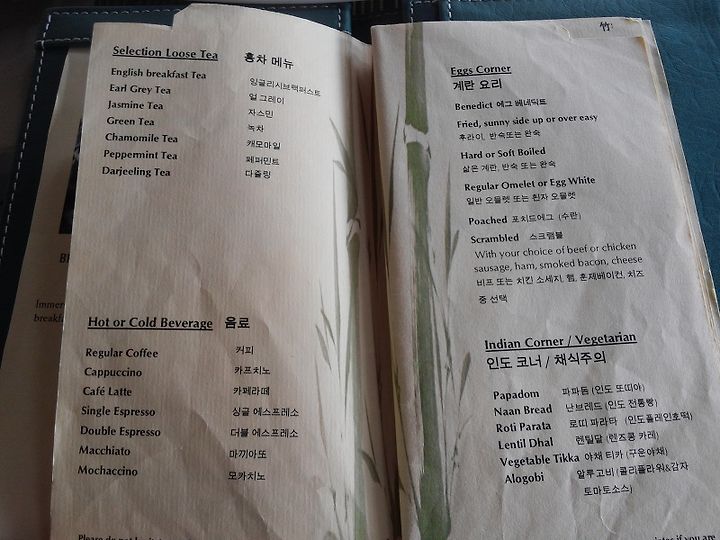 Selection Loose Tea 홍차 메뉴
English breakfast Tea 잉글리시브랙퍼스트
Earl Grey Tea 얼 그레이
Jasmine Tea 자스민
Green Tea 녹차
Chamomile Tea 캐모마일
Peppermint Tea 페퍼민트
Darjeeling Tea 다즐링
Hot or Cold Beverage 음료
Regular Coffee 커피
Cappuccino 카프치노
Café Latte 카페라떼
Single Espresso 싱글 에스프레소
Double Espresso 더블 에스프레소
Macchiato 마끼아또
Mochaccino 모카치노
竹
Eggs Corner
계란 요리
Benedict 에그 베네딕트
Fried, sunny side up or over easy
후라이, 반숙또는 완숙
Hard or Soft Boiled
삶은 계란, 반숙 또는 완숙
Regular Omelet or Egg White
일반 오믈렛 또는 흰자 오믈렛
Poached 포치드에그 (수란)
Scrambled 스크램블
With your choice of beef or chicken
sausage, ham, smoked bacon, cheese
비프 또는 치킨 소세지, 햄, 훈제베이컨, 치즈
중 선택
Indian Corner / Vegetarian
인도 코너 / 채식주의
Papadom 파파돔 (인도 또띠아)
Naan Bread 난브레드 (인도 전통빵)
Roti Parata 로띠 파라타 (인도플레인호떡)
Lentil Dhal 렌틸달 (렌즈콩 카레)
Vegetable Tikka 야채 티카 (구운야채)
Alogobi 알루고비 (콜리플라워&감자
토마토소스)
Immer
breakfa